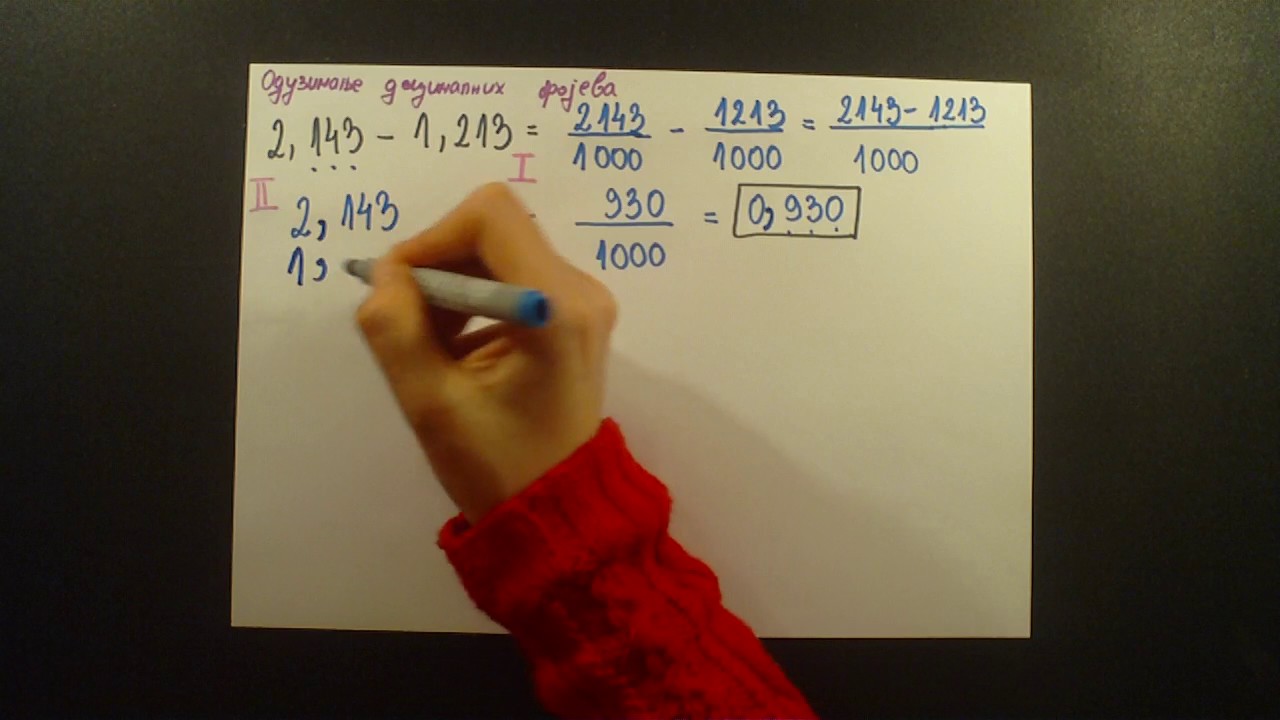 Одузимање децималних бројева
2,143 - 1,213 = 2143/1000 - 1213/1000 = 2143-1213/1000
I
= 930/1000 = 0,930
II
2,143
1,